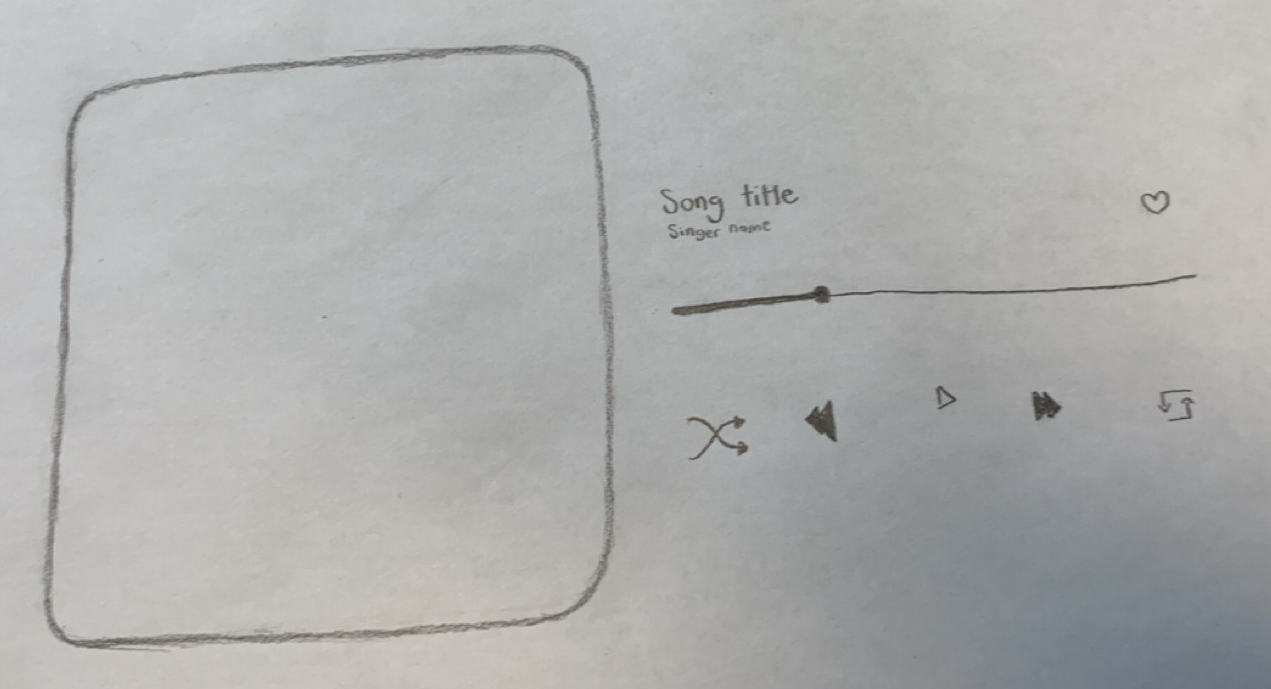 Song title
Singer name